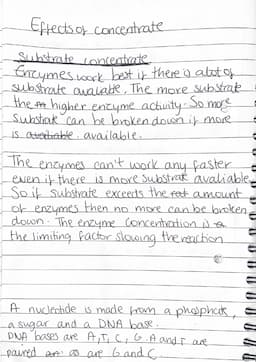 Effects of concentrate
Substrate concentrate
Enzymes work best if there is alot of
substrate avaliable. The more substrate
the higher enzyme activity. So more
Substrate can be broken down if more
is available. available.
The enzymes can't work any faster
even if there is more substrate avaliable
So if substrate exceeds the amount
of enzymes then no more can be broken
down. The enzyme concentration is
the limiting factor slowing the reaction
A nucleotide is made from a phosphate,
a sugar and a DNA base.
DNA bases are A, T, C, G. A and T are
paired as are G and C